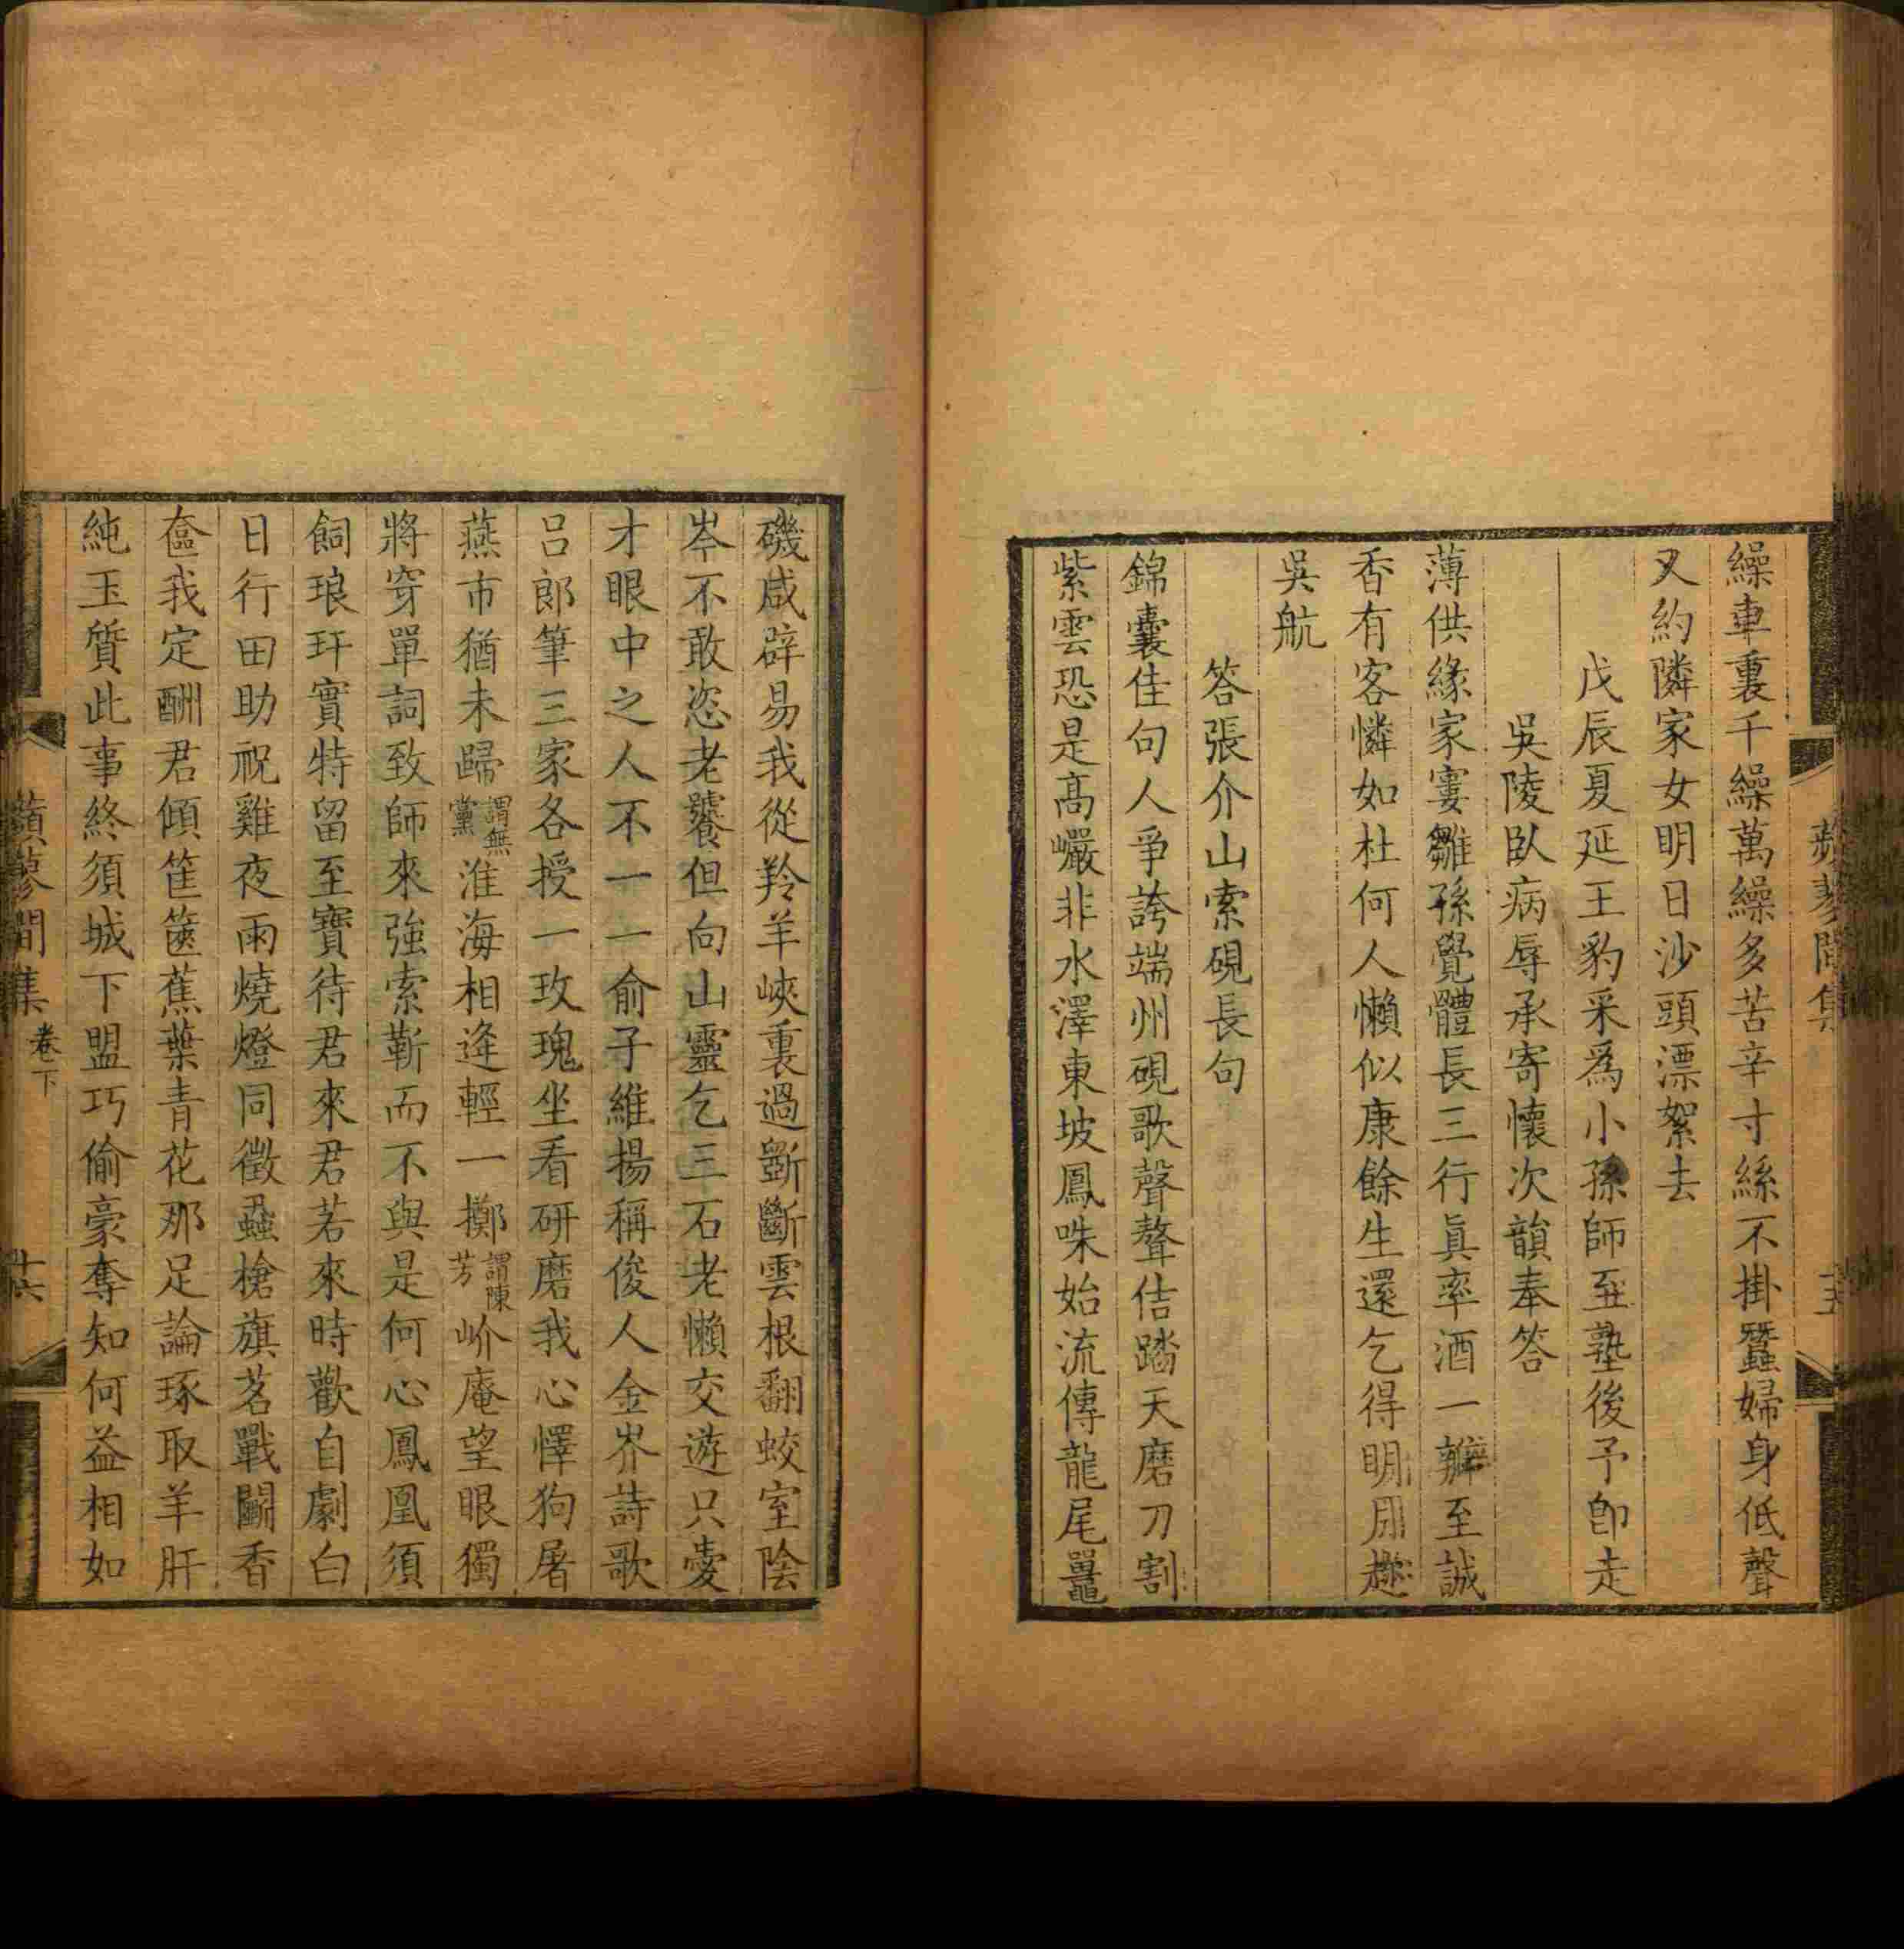 繰車裏千繰萬繰多苦辛寸絲不掛蠶婦身低聲
又約隣家女明日沙頭漂絮去
戊辰夏延王豹采爲小孫師至塾後予卽走
吳陵臥病辱承寄懷次韻奉答
薄供緣家窶雛孫覺體長三行眞率酒一瓣至誠
香有客憐如杜何人懶似康餘生還乞得明用趂
吳航
答張介山索硯長句
錦囊佳句人爭誇端州硯歌聲聱佶踏天磨刀割
紫雲恐是高巖非水澤東坡鳳咮始流傳龍尾鼉
磯咸辟易我從羚羊峽裏過斲斷雲根翻蛟室陰
岑不敢恣老饕但向山靈乞三石老懶交遊只愛
才眼中之人不一一俞子維揚稱俊人金岕詩歌
呂郎筆三家各授一玫瑰坐看研磨我心懌狗屠
燕市猶未歸謂無黨淮海相逢輕一擲謂陳芳岕庵望眼獨
將穿單詞致師來強索靳而不與是何心鳳凰須
飼琅玕實特留至寶待君來君若來時歡自劇白
日行田助祝雞夜雨燒燈同徵蝨槍旗茗戰鬭香
奩我定酬君傾筐篋蕉葉青花那足論琢取羊肝
純玉質此事終須城下盟巧偷豪奪知何益相如
蘋蓼閒集 卷下 十六